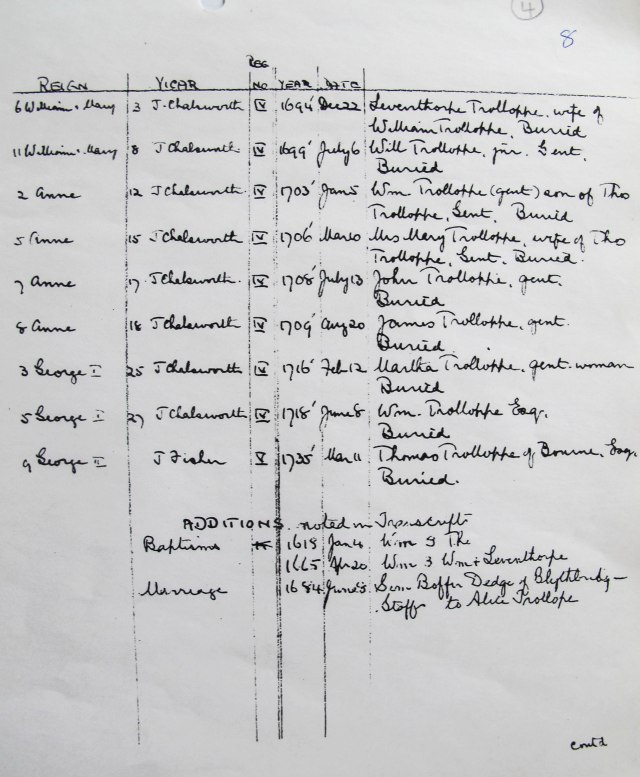 4
8
REG
REIGN VICAR NO YEAR DATE
6 William & Mary 3 J. Chalsworth IV 1694 Dec 22 Leventhorpe Trolloppe, wife of
William Trolloppe. Buried
11 William & Mary 8 J Chalsworth IV 1699 July 6 Will Trolloppe, jnr. Gent.
Buried
2 Anne 12 J Chalsworth IV 1703 Jan 5 Wm Trolloppe (gent) son of Tho
Trolloppe, Gent. Buried
5 Anne 15 J Chalsworth IV 1706 Mar 10 Mrs Mary Trolloppe, wife of Tho
Trolloppe, Gent. Buried.
7 Anne 17 J Chalsworth IV 1708 July 13 John Trolloppe, gent.
Buried
8 Anne 18 J Chalsworth IV 1709 Aug 20 James Trolloppe, gent.
Buried
3 George I 25 J Chalsworth IV 1716 Feb 12 Martha Trolloppe, gent. woman
Buried
5 George I 27 J Chalsworth IV 1718 June 8 Wm. Trolloppe Esq.
Buried
9 George II J Fisher V 1735 Mar 11 Thomas Trolloppe of Bourne, Esq.
Buried.
ADDITIONS noted in Transcripts
Baptisms 1618 Jan 4 Wm S The
1665 Apr 20 Wm S Wm & Leventhorpe
Marriage 1684 June 5 Dedge of
Staff to Alice Trollope
contd